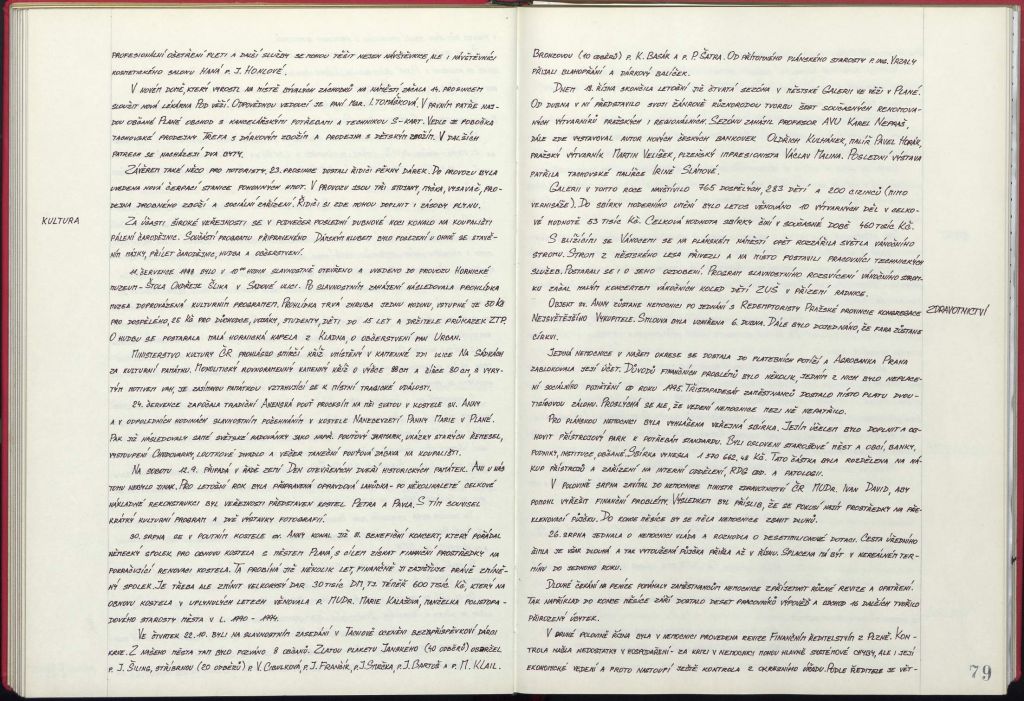 PROFESIONÁLNÍ OŠETŘENÍ PLETI A DALŠÍ SLUŽBY SE MOHOU TĚŠIT NEJEN NÁVŠTĚVNICE, ALE I NÁVŠTĚVNÍCI
KOSMETICKÉHO SALONU HANÁ P. J. HONLOVÉ.
V NOVÉM DOMĚ, KTERÝ VYROSTL NA MÍSTĚ BÝVALÝCH ZÁCHODKŮ NA NÁMĚSTÍ ZAČALA 14. PROSINCEM
SLOUŽIT NOVÁ LÉKÁRNA POD VĚŽÍ. ODPOVĚDNOU VEDOUCÍ JE PANÍ MGR. I. TOMÁŠKOVÁ. V PRVNÍM PATŘE NAJ-
DOU OBČANÉ PLANÉ OBCHOD S KANCELÁŘSKÝMI POTŘEBAMI A TECHNIKOU S-KART. VEDLE JE POBOČKA
TACHOVSKÉ PRODEJNY TREFA S DÁRKOVÝM ZBOŽÍM A PRODEJNA S DĚTSKÝM ZBOŽÍM. V DALŠÍCH
PATRECH SE NACHÁZEJÍ DVA BYTY.
ZÁVĚREM TAKÉ NĚCO PRO MOTORISTY. 23. PROSINCE DOSTALI ŘIDIČI PĚKNÝ DÁREK. DO PROVOZU BYLA
UVEDENA NOVÁ ČERPACÍ STANICE POHONNÝCH HMOT. V PROVOZU JSOU TŘI STOJANY, MYČKA, VYSAVAČ, PRO-
DEJNA SMÍŠENÉHO ZBOŽÍ A SOCIÁLNÍ ZAŘÍZENÍ. ŘIDIČI SI ZDE MOHOU DOPLNIT I ZÁSOBY PLYNU.
KULTURA
ZA ÚČASTI ŠIROKÉ VEŘEJNOSTI SE V PODVEČER POSLEDNÍ DUBNOVÉ NOCI KONALO NA KOUPALIŠTI
PÁLENÍ ČARODĚJNIC. SOUČÁSTÍ PROGRAMU PŘIPRAVENÉHO DÁMSKÝM KLUBEM BYLO POSEZENÍ U OHNĚ SE STAVĚ-
NÍM MÁJKY, PŘÍLET ČARODĚJNIC, HUDBA A OBČERSTVENÍ.
11. ČERVENCE 1998 BYLO V 10 HODIN SLAVNOSTNĚ OTEVŘENO A UVEDENO DO PROVOZU HORNICKÉ
MUZEUM - ŠTOLA ONDŘEJE ŠLIKA V SADOVÉ ULICI. PO SLAVNOSTNÍM ZAHÁJENÍ NÁSLEDOVALA PROHLÍDKA
MUZEA DOPROVÁZENÁ KULTURNÍM PROGRAMEM. PROHLÍDKA TRVÁ ZHRUBA JEDNU HODINU, VSTUPNÉ JE 50 KČ
PRO DOSPĚLÉHO, 25 KČ PRO DŮCHODCE, VOJÁKY, STUDENTY, DĚTI DO 15 LET A DRŽITELE PRŮKAZEK ZTP.
O HUDBU SE POSTARALA MALÁ HORNICKÁ KAPELA Z KLADNA, O OBČERSTVENÍ PAN URBAN.
MINISTERSTVO KULTURY ČR PROHLÁSILO SMÍRČÍ KŘÍŽ UMÍSTĚNÝ V KAMENNÉ ZDI ULICE NA SÁDKÁCH
ZA KULTURNÍ PAMÁTKU. MONOLITICKÝ ROVNORAMENNÝ KAMENNÝ KŘÍŽ O VÝŠCE 88 CM A ŠÍŘCE 80 CM, S VYRY-
TÝM MOTIVEM VAH, JE ZAJÍMAVOU PAMÁTKOU VZTAHUJÍCÍ SE K MÍSTNÍ TRAGICKÉ UDÁLOSTI.
24. ČERVENCE ZAPOČALA TRADIČNÍ ANENSKÁ POUŤ PROCESÍM NA MŠI SVATOU V KOSTELE SV. ANNY
A V ODPOLEDNÍCH HODINÁCH SLAVNOSTNÍM POŽEHNÁNÍM V KOSTELE NANEBEVZETÍ PANNY MARIE V PLANÉ.
PAK JIŽ NÁSLEDOVALY SAMÉ SVĚTSKÉ RADOVÁNKY JAKO NAPŘ. POUŤOVÝ JARMARK, UKÁZKY STARÝCH ŘEMESEL,
VYSTOUPENÍ CIMRMANKY, LOUTKOVÉ DIVADLO A VEČER TANEČNÍ POUŤOVÁ ZÁBAVA NA KOUPALIŠTI.
NA SOBOTU 12. 9. PŘIPADÁ V ŘADĚ ZEMÍ DEN OTEVŘENÝCH DVEŘÍ HISTORICKÝCH PAMÁTEK. ANI U NÁS
TOMU NEBYLO JINAK. PRO LETOŠNÍ ROK BYLA PŘIPRAVENA OPRAVDOVÁ LAHŮDKA - PO NĚKOLIKALETÉ CELKOVÉ
NÁKLADNÉ REKONSTRUKCI BYL VEŘEJNOSTI PŘEDSTAVEN KOSTEL PETRA A PAVLA. S TÍM SOUVISEL
KRÁTKÝ KULTURNÍ PROGRAM A DVĚ VÝSTAVKY FOTOGRAFIÍ.
30. SRPNA SE V POUTNÍM KOSTELE SV. ANNY KONAL JIŽ III. BENEFIČNÍ KONCERT, KTERÝ POŘÁDAL
NĚMECKÝ SPOLEK PRO OBNOVU KOSTELA S MĚSTEM PLANÁ, S CÍLEM ZÍSKAT FINANČNÍ PROSTŘEDKY NA
POKRAČUJÍCÍ RENOVACI KOSTELA. TA PROBÍHÁ JIŽ NĚKOLIK LET, FINANČNĚ JI ZAJIŠŤUJE PRÁVĚ ZMÍNĚ-
NÝ SPOLEK. JE TŘEBA ALE ZMÍNIT VELKORYSÝ DAR 30 TISÍC DM, TJ. TÉMĚŘ 600 TISÍC KČ, KTERÝ NA
OBNOVU KOSTELA V UPLYNULÝCH LETECH VĚNOVALA P. MUDR. MARIE KALAŠOVÁ, MANŽELKA POLISTOPA-
DOVÉHO STAROSTY MĚSTA V L. 1990 - 1994.
VE ČTVRTEK 22. 10. BYLI NA SLAVNOSTNÍM ZASEDÁNÍ V TACHOVĚ OCENĚNI BEZPŘÍSPĚVKOVÍ DÁRCI
KRVE. Z NAŠEHO MĚSTA TAM BYLO POZVÁNO 8 OBČANŮ. ZLATOU PLAKETU JANSKÉHO (40 ODBĚRŮ) OBDRŽEL
P. J. ŠLING, STŘÍBRNOU (20 ODBĚRŮ) P. V. CIBULKOVÁ, P. J. FRANČÍK, P. J. SMEČKA, P. J. BARTOŠ A P. M. KLAIL.
BRONZOVOU (10 ODBĚRŮ) P. K. BASÁK A P. P. ŠATRA. OD PŘÍTOMNÉHO PLÁNSKÉHO STAROSTY P. ING. VRZALY
PŘIJALI BLAHOPŘÁNÍ A DÁRKOVÝ BALÍČEK.
DNEM 18. ŘÍJNA SKONČILA LETOŠNÍ JIŽ ČTVRTÁ SEZÓNA V MĚSTSKÉ GALERII VE VĚŽI V PLANÉ.
OD DUBNA V NÍ PŘEDSTAVILO SVOJI ŽÁNROVĚ RŮZNORODOU TVORBU ŠEST SOUČASNÝCH RENOMOVA-
NÝCH VÝTVARNÍKŮ PRAŽSKÝCH I REGIONÁLNÍCH. SEZÓNU ZAHÁJIL PROFESOR AVU KAREL NEPRAŠ,
DÁLE ZDE VYSTAVOVAL AUTOR NOVÝCH ČESKÝCH BANKOVEK OLDŘICH KULHÁNEK, MALÍŘ PAVEL HORÁK,
PRAŽSKÝ VÝTVARNÍK MARTIN VELÍŠEK, PLZEŇSKÝ IMPRESIONISTA VÁCLAV MALINA. POSLEDNÍ VÝSTAVA
PATŘILA TACHOVSKÉ MALÍŘCE IRENĚ SLÁMOVÉ.
GALERII V TOMTO ROCE NAVŠTÍVILO 765 DOSPĚLÝCH, 283 DĚTÍ A 200 CIZINCŮ (MIMO
VERNISÁŽE). DO SBÍRKY MODERNÍHO UMĚNÍ BYLO LETOS VĚNOVÁNO 10 VÝTVARNÝCH DĚL V CELKO-
VÉ HODNOTĚ 53 TISÍC KČ. CELKOVÁ HODNOTA SBÍRKY ČINÍ V SOUČASNÉ DOBĚ 460 TISÍC KČ.
S BLÍŽÍCÍMI SE VÁNOCEMI SE NA PLÁNSKÉM NÁMĚSTÍ OPĚT ROZZÁŘILA SVĚTLA VÁNOČNÍHO
STROMU. STROM Z MĚSTSKÉHO LESA PŘIVEZLI A NA MÍSTO POSTAVILI PRACOVNÍCI TECHNICKÝCH
SLUŽEB. POSTARALI SE I O JEHO OZDOBENÍ. PROGRAM SLAVNOSTNÍHO ROZSVÍCENÍ VÁNOČNÍHO STROM-
KU ZAČAL MALÝM KONCERTEM VÁNOČNÍCH KOLED DĚTÍ ZUŠ V PŘÍZEMÍ RADNICE.
ZDRAVOTNICTVÍ
OBJEKT SV. ANNY ZŮSTANE NEMOCNICI PO JEDNÁNÍ S REDEMPTORISTY PRAŽSKÉ PROVINCIE KONGREGACE
NEJSVĚTĚJŠÍHO VYKUPITELE. SMLOUVA BYLA UZAVŘENA 6. DUBNA. DÁLE BYLO DOJEDNÁNO, ŽE FARA ZŮSTANE
CÍRKVI.
JEDINÁ NEMOCNICE V NAŠEM OKRESE SE DOSTALA DO PLATEBNÍCH POTÍŽÍ A AGROBANKA PRAHA
ZABLOKOVALA JEJÍ ÚČET. DŮVODŮ FINANČNÍCH PROBLÉMŮ BYLO NĚKOLIK, JEDNÍM Z NICH BYLO NEPLACE-
NÍ SOCIÁLNÍHO POJIŠTĚNÍ OD ROKU 1995. TŘISTAPADESÁT ZAMĚSTNANCŮ DOSTALO MÍSTO PLATU DVOU-
TISÍCOVOU ZÁLOHU. PROSLÝCHÁ SE ALE, ŽE VEDENÍ NEMOCNICE MEZI NĚ NEPATŘILO.
PRO PLÁNSKOU NEMOCNICI BYLA VYHLÁŠENA VEŘEJNÁ SBÍRKA. JEJÍM ÚČELEM BYLO DOPLNIT A OB-
NOVIT PŘÍSTROJOVÝ PARK K POTŘEBÁM STANDARDU. BYLI OSLOVENI STAROSTOVÉ MĚST A OBCÍ, BANKY,
PODNIKY, INSTITUCE, OBČANÉ. SBÍRKA VYNESLA 1 570 662,48 KČ. TATO ČÁSTKA BYLA ROZDĚLENA NA NÁ-
KUP PŘÍSTROJŮ A ZAŘÍZENÍ NA INTERNÍ ODDĚLENÍ, RDG ODD. A PATOLOGII.
V POLOVINĚ SRPNA ZAVÍTAL DO NEMOCNICE MINISTR ZDRAVOTNICTVÍ ČR MUDR. IVAN DAVID, ABY
POMOHL VYŘEŠIT FINANČNÍ PROBLÉMY. VÝSLEDKEM BYL PŘÍSLIB, ŽE SE POKUSÍ NAJÍT PROSTŘEDKY NA PŘE-
KLENOVACÍ PŮJČKU. DO KONCE MĚSÍCE BY SE MĚLA NEMOCNICE ZBAVIT DLUHŮ.
26. SRPNA JEDNALA O NEMOCNICI VLÁDA A ROZHODLA O DESETIMILIONOVÉ DOTACI. CESTA ÚŘEDNÍHO
ŠIMLA JE VŠAK DLOUHÁ A TAK VYTOUŽENÁ PŮJČKA PŘIŠLA AŽ V ŘÍJNU. SPLACENA MÁ BÝT V NEREÁLNÉM TER-
MÍNU DO JEDNOHO ROKU.
DLOUHÉ ČEKÁNÍ NA PENÍZE POMÁHALY ZAMĚSTNANCŮM NEMOCNICE ZPŘÍJEMNIT RŮZNÉ REVIZE A OPATŘENÍ.
TAK NAPŘÍKLAD DO KONCE MĚSÍCE ZÁŘÍ DOSTALO DESET PRACOVNÍKŮ VÝPOVĚĎ A ODCHOD 15 DALŠÍCH TVOŘILO
PŘIROZENÝ ÚBYTEK.
V DRUHÉ POLOVINĚ ŘÍJNA BYLA V NEMOCNICI PROVEDENA REVIZE FINANČNÍM ŘEDITELSTVÍM Z PLZNĚ. KON-
TROLA NAŠLA NEDOSTATKY V HOSPODAŘENÍ - ZA KRIZI V NEMOCNICI MOHOU HLAVNĚ SYSTÉMOVÉ CHYBY, ALE I JEJÍ
EKONOMICKÉ VEDENÍ A PROTO NASTOUPÍ JEŠTĚ KONTROLA Z OKRESNÍHO ÚŘADU. PODLE ŘEDITELE JE VĚT-
79